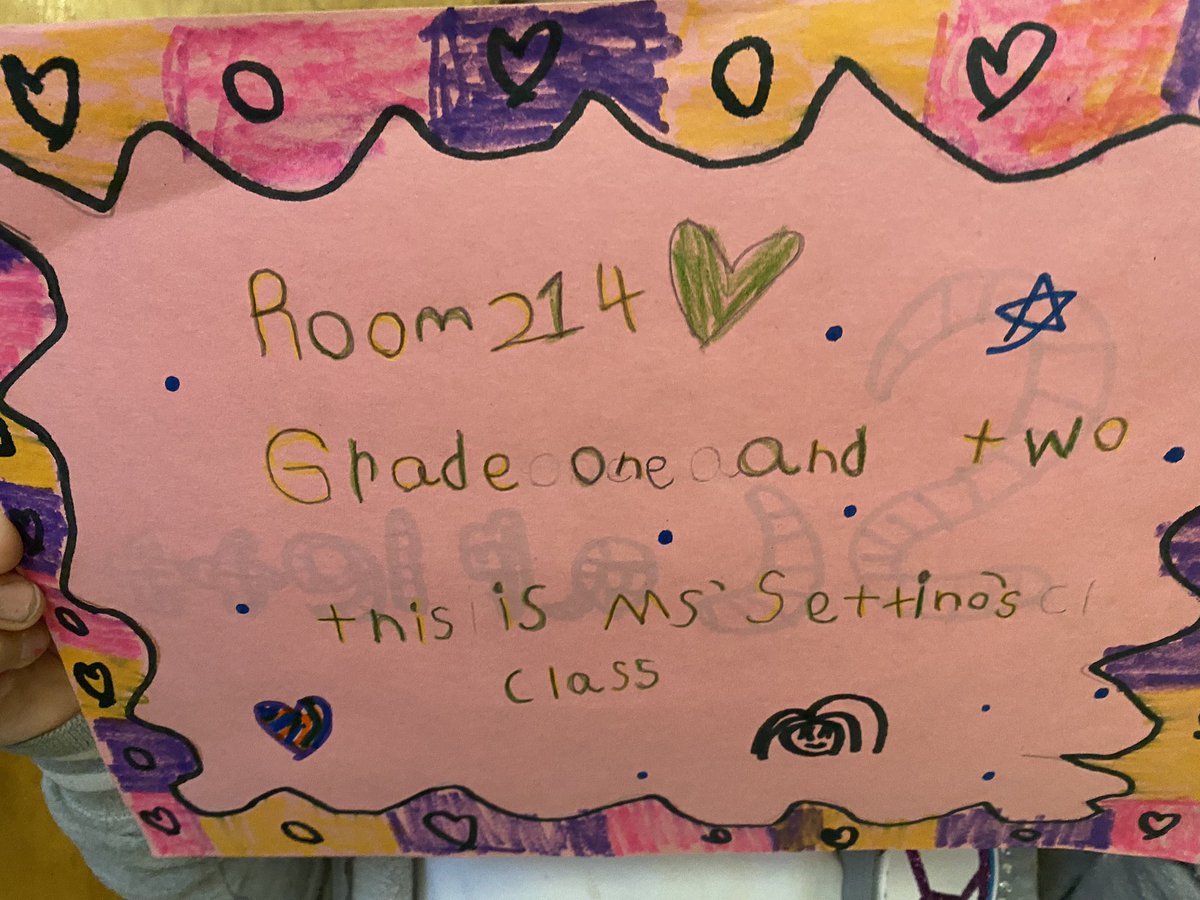 Room 214
Grade one and two
this is Ms' Settino's
class